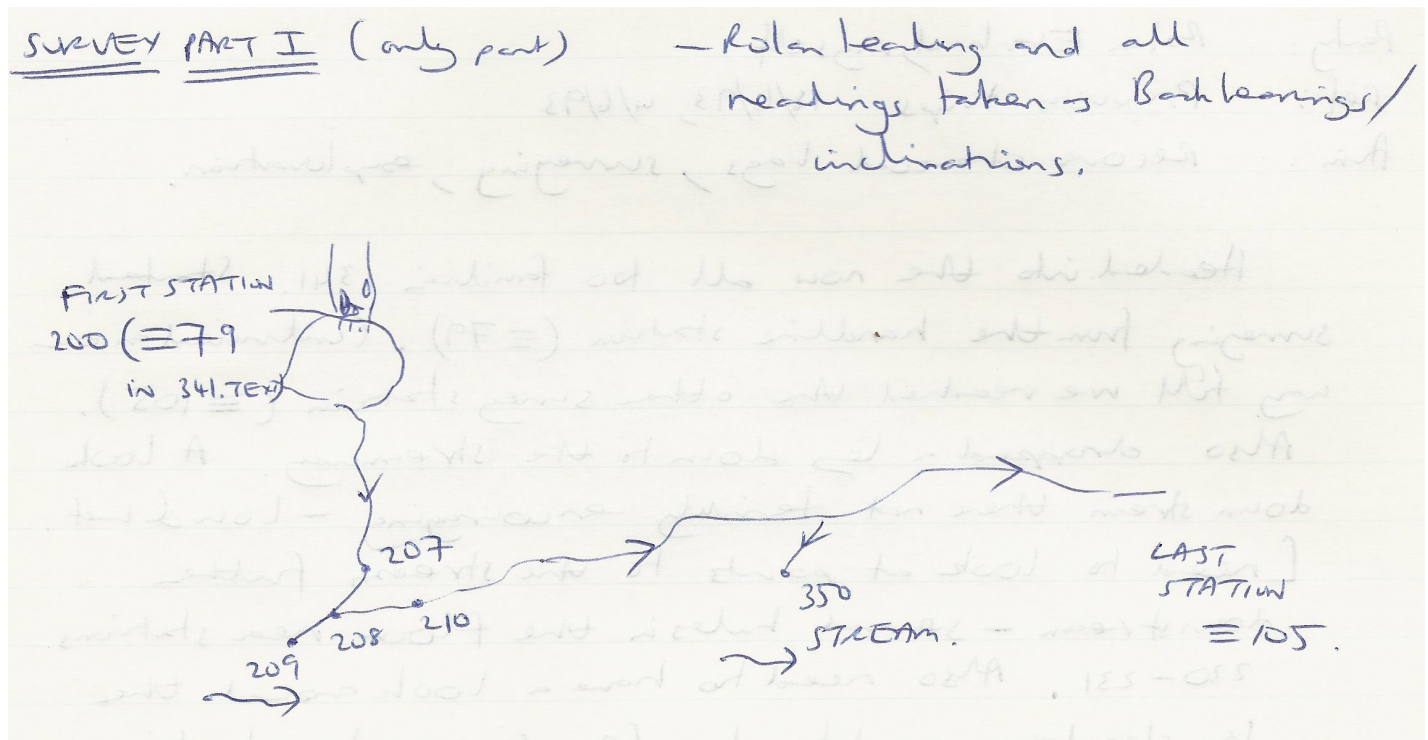 SURVEY PART I (only part) - Rolan leading and all
readings taken → Back bearings/
inclinations.
FIRST STATION
200 (≡79
IN 341.TEXT
207
208
209
210
350
STREAM.
LAST
STATION
≡ 105.